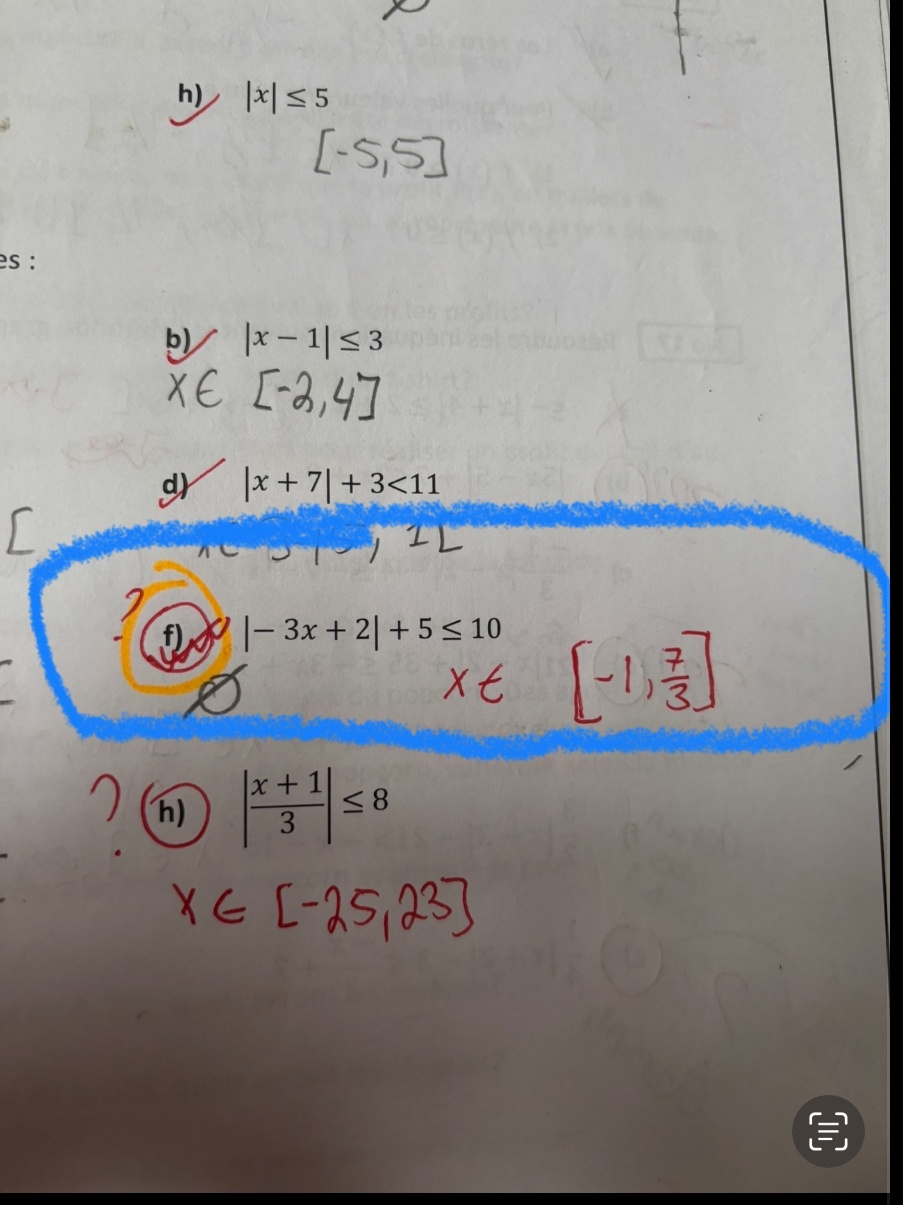 h) |x| ≤ 5
[-5,5]
es :
b) |x − 1| ≤ 3
x ∈ [-2,4]
d) |x + 7| + 3<11
[
, 1[
? f) |− 3x + 2| + 5 ≤ 10
∅ x ∈ [-1, 7/3]
? h) |(x + 1)/3| ≤ 8
x ∈ [-25,23]